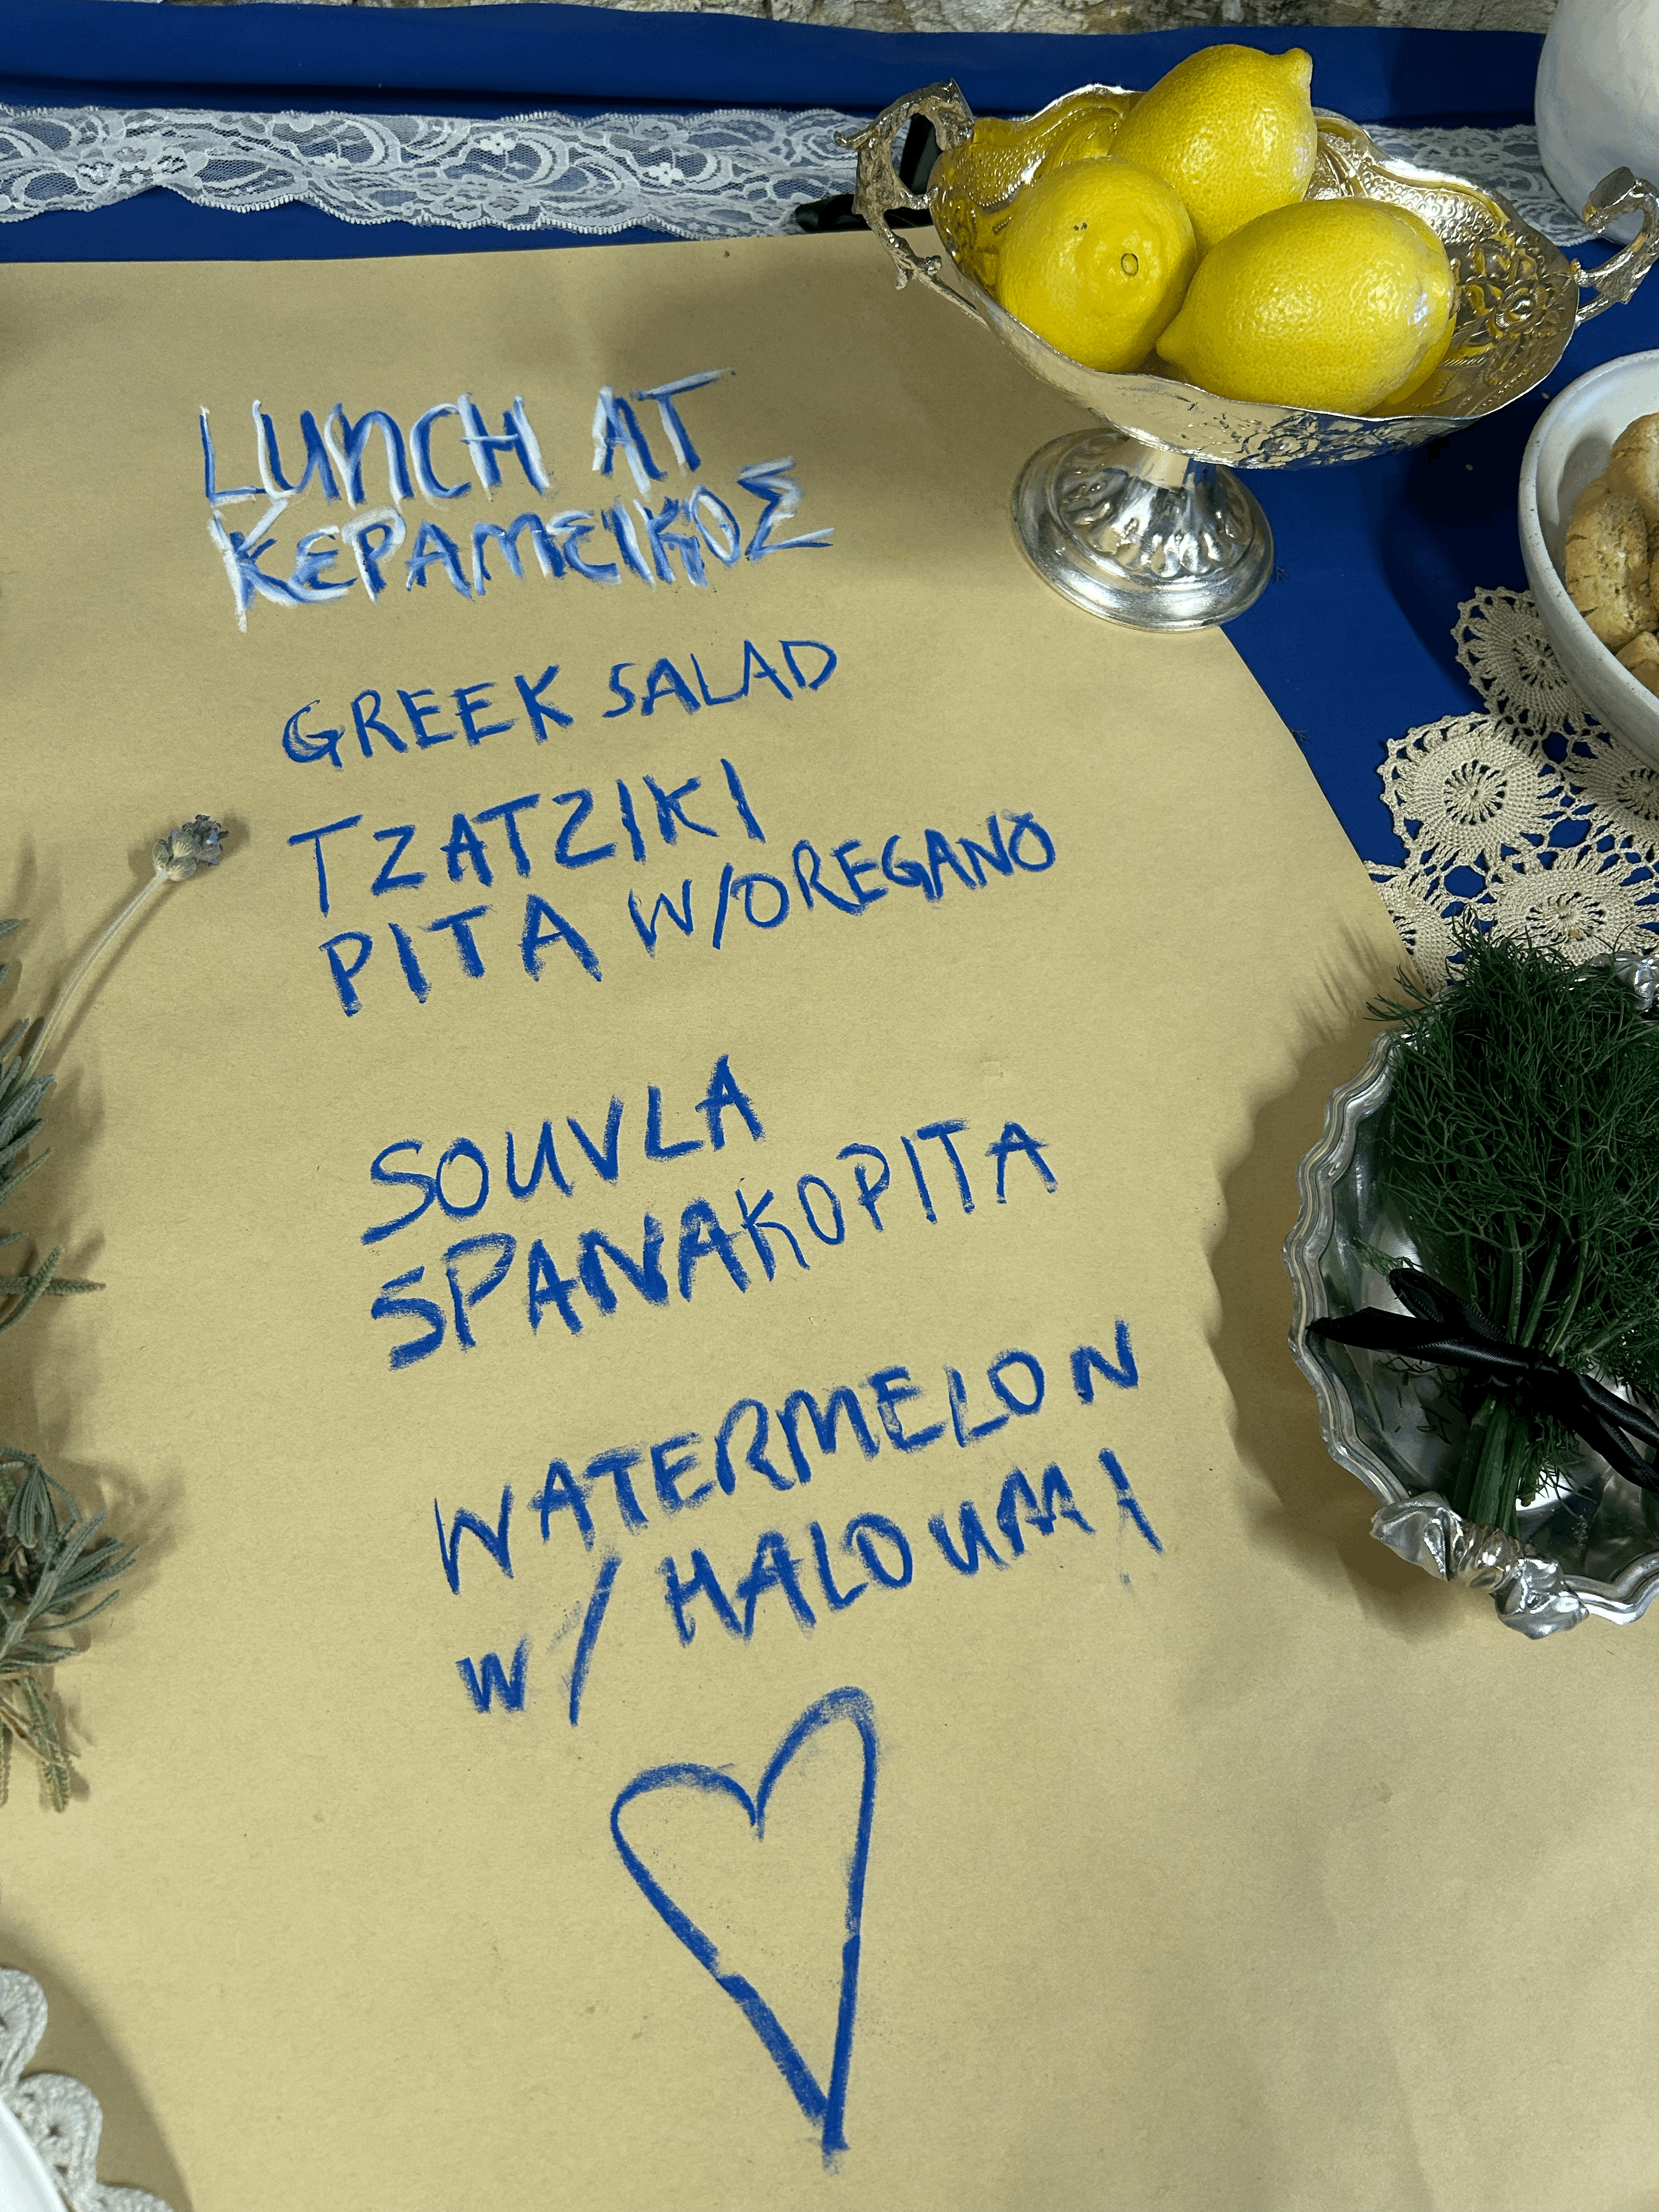 LUNCH AT
ΚΕΡΑΜΕΙΚΟΣ
GREEK SALAD
TZATZIKI
PITA W/OREGANO
SOUVLA
SPANAKOPITA
WATERMELON
W/ HALOUMI